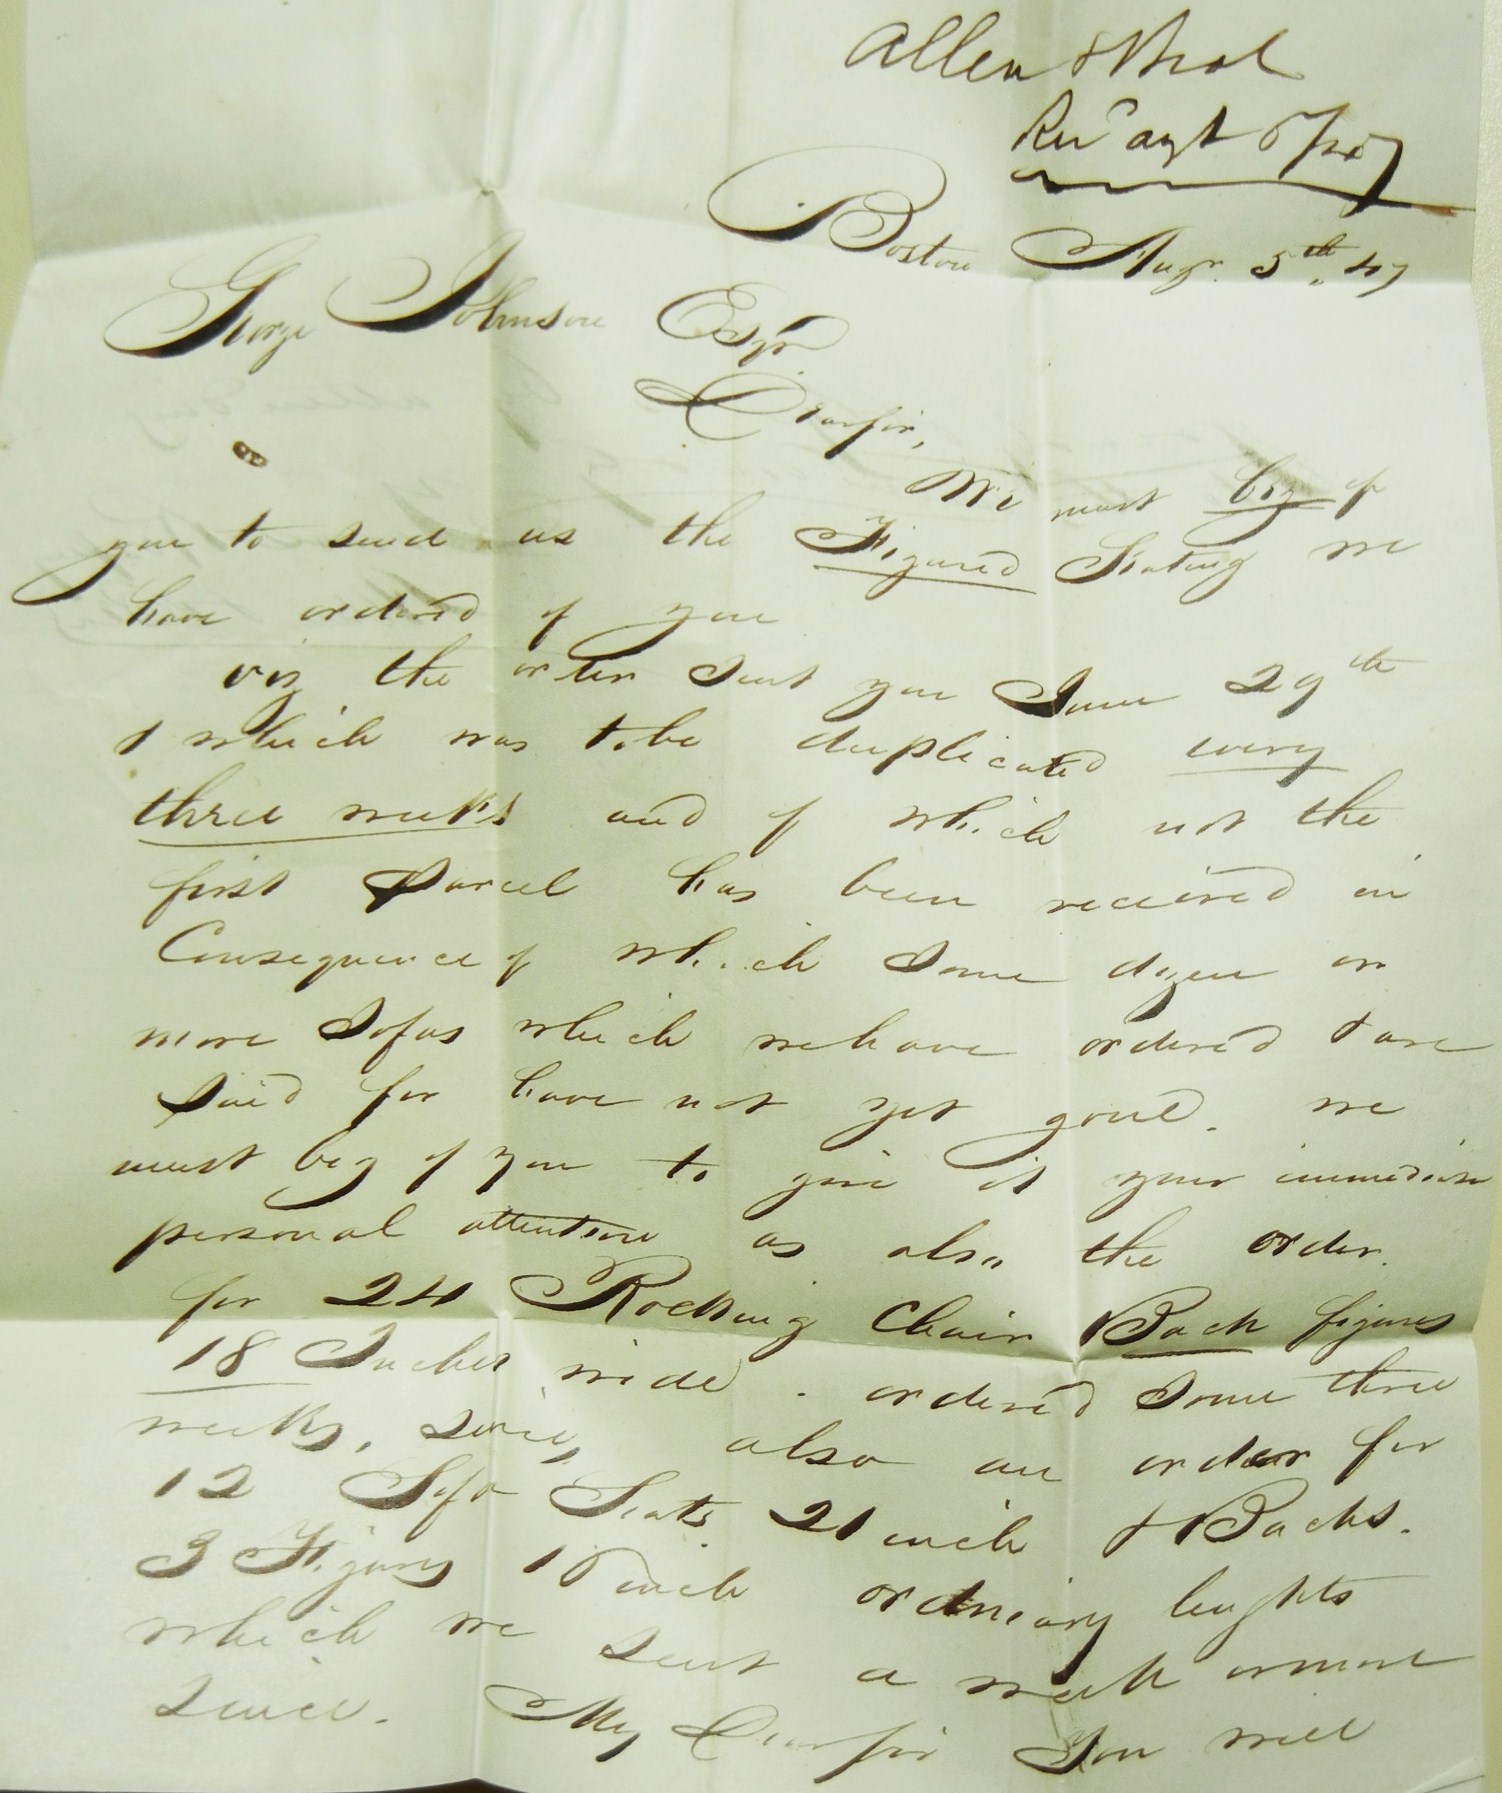 Allen & Neal
Recd augt 6/47
Boston Augt. 5th. 47
George Johnson Esqr
Dear Sir,
We must beg of
you to send us the Figured Seating we
have ordered of you
viz the order sent you June 29th
& which was to be duplicated every
three weeks and of which not the
first Parcel has been received in
Consequence of which some dozen or
more Sofas which we have ordered & are
Said for have not yet gone. we
must beg of you to give it your immediate
personal attention as also the order.
for 24 Rocking Chair Back figures
18 Inches wide. ordered some three
weeks, since, also an order for
12 Sofa Seats 21 inch & Backs.
3 Figures 18 inch ordinary lenghts
which we sent a week or more
since. My Dear Sir You will